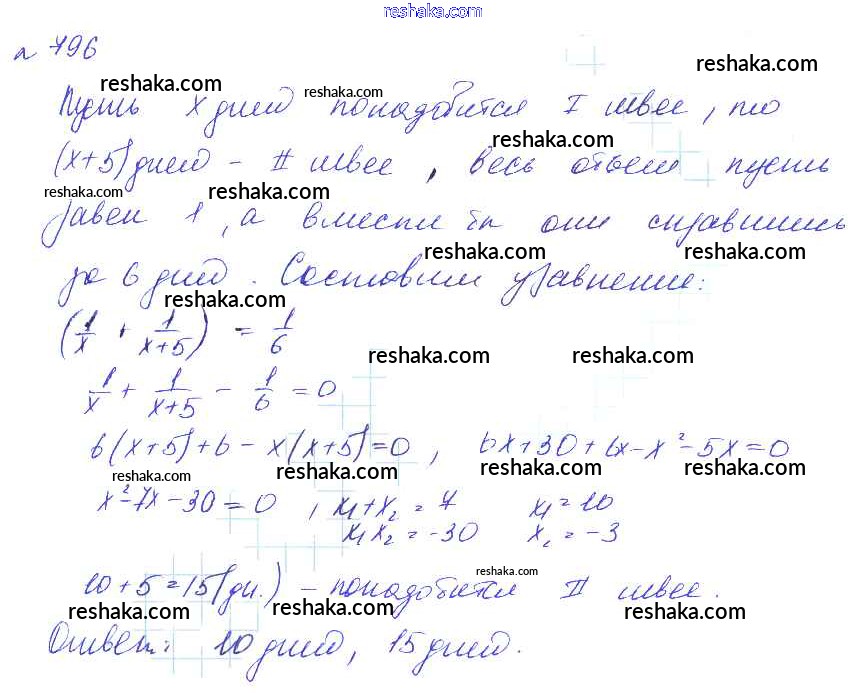 reshaka.com
n 796
reshaka.com reshaka.com
Пусть x дней понадобится I швее, то
reshaka.com reshaka.com
(x+5) дней - II швее, весь объем пусть
reshaka.com reshaka.com
равен 1, а вместе бы они справились
reshaka.com reshaka.com
за 6 дней. Составим уравнение:
reshaka.com
(1/x + 1/(x+5)) = 1/6
reshaka.com reshaka.com
1/x + 1/(x+5) - 1/6 = 0
6(x+5)+6-x(x+5)=0, 6x+30+6x-x²-5x=0
reshaka.com reshaka.com reshaka.com
x²-7x-30=0, x₁+x₂=7 x₁=10
x₁x₂=-30 x₂=-3
reshaka.com
10+5=15(дн.) - понадобится II швее.
reshaka.com reshaka.com reshaka.com
Ответ: 10 дней, 15 дней.